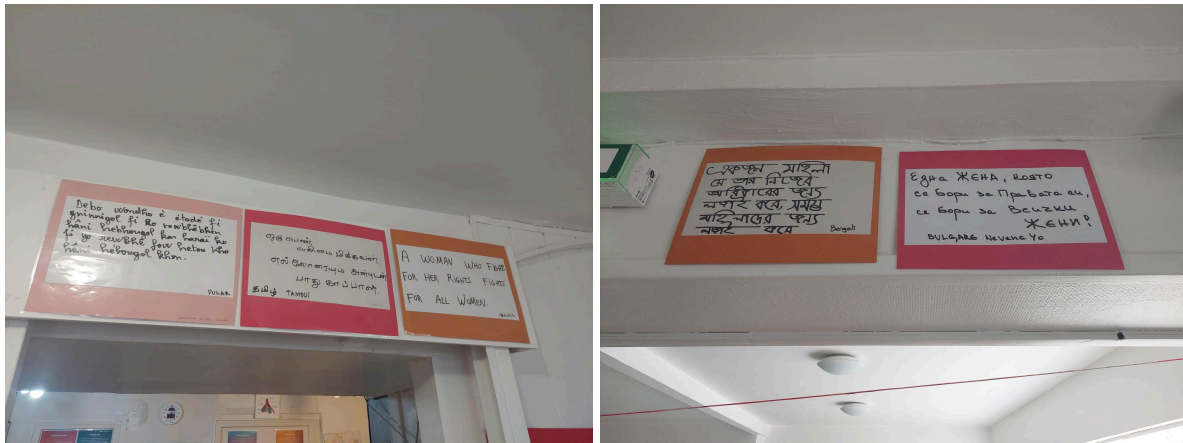 Debo wondho e ɛbude fi
gninnigol fi ko rewbhe bhen
hâni hebhougol kon haraï ko
fi yo rewbhe fow hetou kho
hâni hébougol khon.
PULAR
ஒரு பெண்
வலிமை மிக்கவள்.
எல்லோரையும் அன்புடன்
பாதுகாப்பாள்.
தமிழ் TAMOUL
A WOMAN WHO FIGHTS
FOR HER RIGHTS FIGHTS
FOR ALL WOMEN.
একজন মহিলা
যে তার নিজের
অধিকারের জন্য
লড়াই করে, সমস্ত
মহিলাদের জন্য
লড়াই করে
Bengali
Една ЖЕНА, която
се бори за Правата си,
се бори за Всички
ЖЕНИ!
BULGARE Nevene Yo